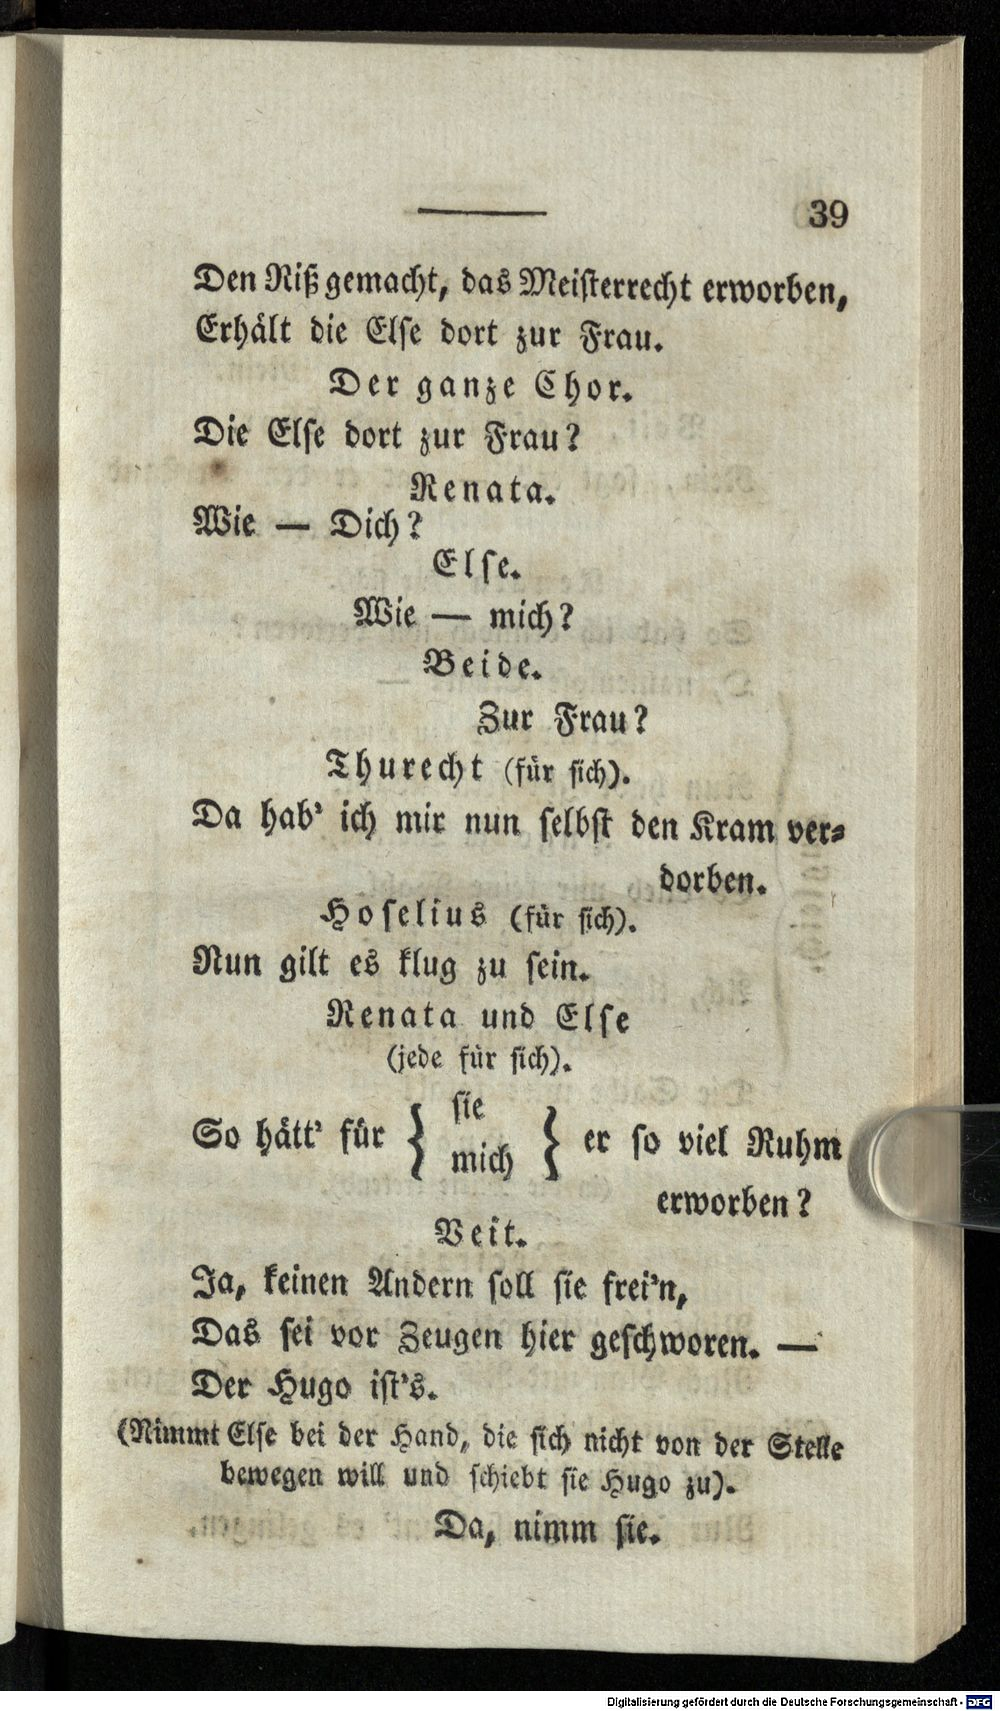 39
Den Riß gemacht, das Meisterrecht erworben,
Erhält die Else dort zur Frau.
Der ganze Chor.
Die Else dort zur Frau?
Renata.
Wie — Dich?
Else.
Wie — mich?
Beide.
Zur Frau?
Thurecht (für sich).
Da hab' ich mir nun selbst den Kram ver-
dorben.
Hoselius (für sich).
Nun gilt es klug zu sein.
Renata und Else
(jede für sich).
So hätt' für } sie mich } er so viel Ruhm
erworben?
Veit.
Ja, keinen Andern soll sie frei'n,
Das sei vor Zeugen hier geschworen. —
Der Hugo ist's.
(Nimmt Else bei der Hand, die sich nicht von der Stelle
bewegen will und schiebt sie Hugo zu).
Da, nimm sie.
Digitalisierung gefördert durch die Deutsche Forschungsgemeinschaft - DFG